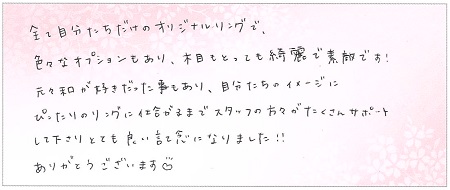 全て自分たちだけのオリジナルリングで、
色々なオプションもあり、木目もとっても綺麗で素敵です!
元々和が好きだった事もあり、自分たちのイメージに
ぴったりのリングに仕合がるまでスタッフの方々がたくさんサポート
して下さりとても良い記念になりました!!
ありがとうございます☺